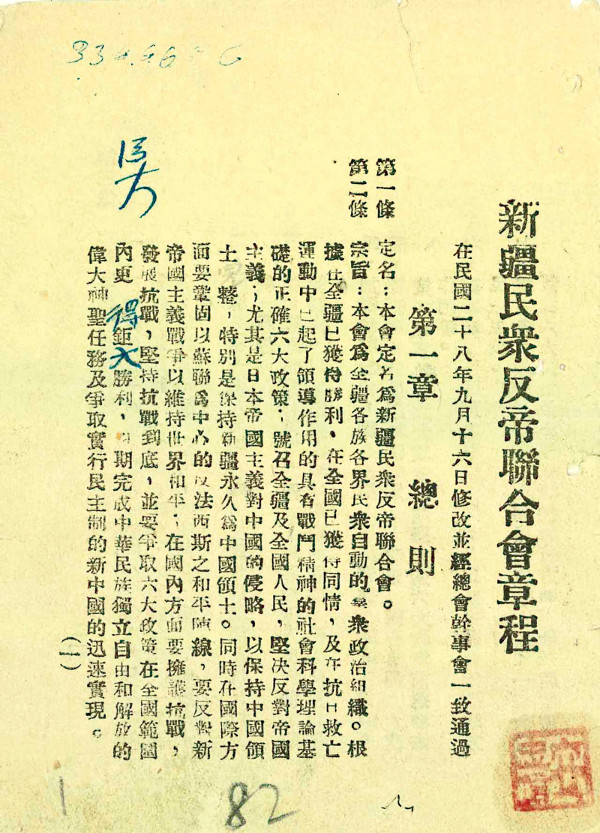 新疆民衆反帝聯合會章程
在民國二十八年九月十六日修改並經總會幹事會一致通過
第一章 總則
第一條 定名：本會定名爲新疆民衆反帝聯合會。
第二條 宗旨：本會爲全疆各族各界民衆自動的羣衆政治組織。根
據在全疆已獲得勝利，在全國已獲得同情，及在抗日救亡
運動中已起了領導作用的具有戰鬥精神的社會科學理論基
礎的正確六大政策，號召全疆及全國人民，堅決反對帝國
主義；尤其是日本帝國主義對中國的侵略，以保持中國領
土 整，特別是保持新疆永久爲中國領土。同時在國際方
面要鞏固以蘇聯爲中心的反法西斯之和平陣線，要反對新
帝國主義戰爭以維持世界和平；在國內方面要擁護抗戰，
發展抗戰，堅持抗戰到底，並要爭取六大政策在全國範圍
內更得鉅大勝利， 期完成中華民族獨立自由和解放的
偉大神聖任務及爭取實行民主制的新中國的迅速實現。
（一）
82
1